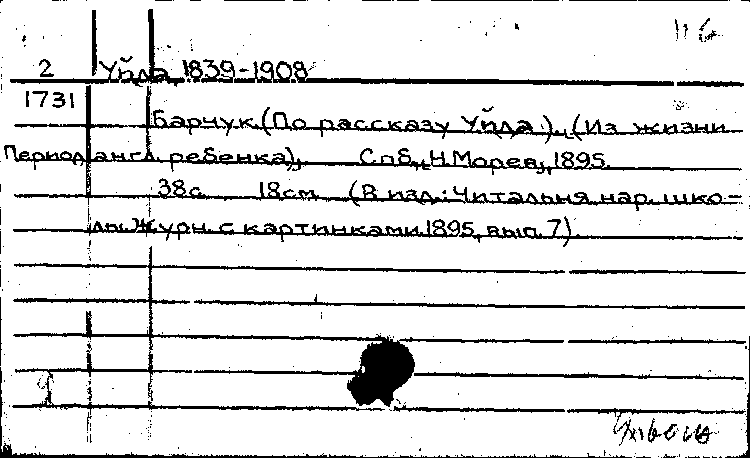 2 Уйда, 1839-1908
1731
Барчук. (По рассказу Уйда). (Из жизни
Период англ. ребенка). Спб., Н. Морев, 1895.
38с. 18см. (В изд.: Читальня нар. шко-
лы. Журн. с картинками. 1895, вып. 7).